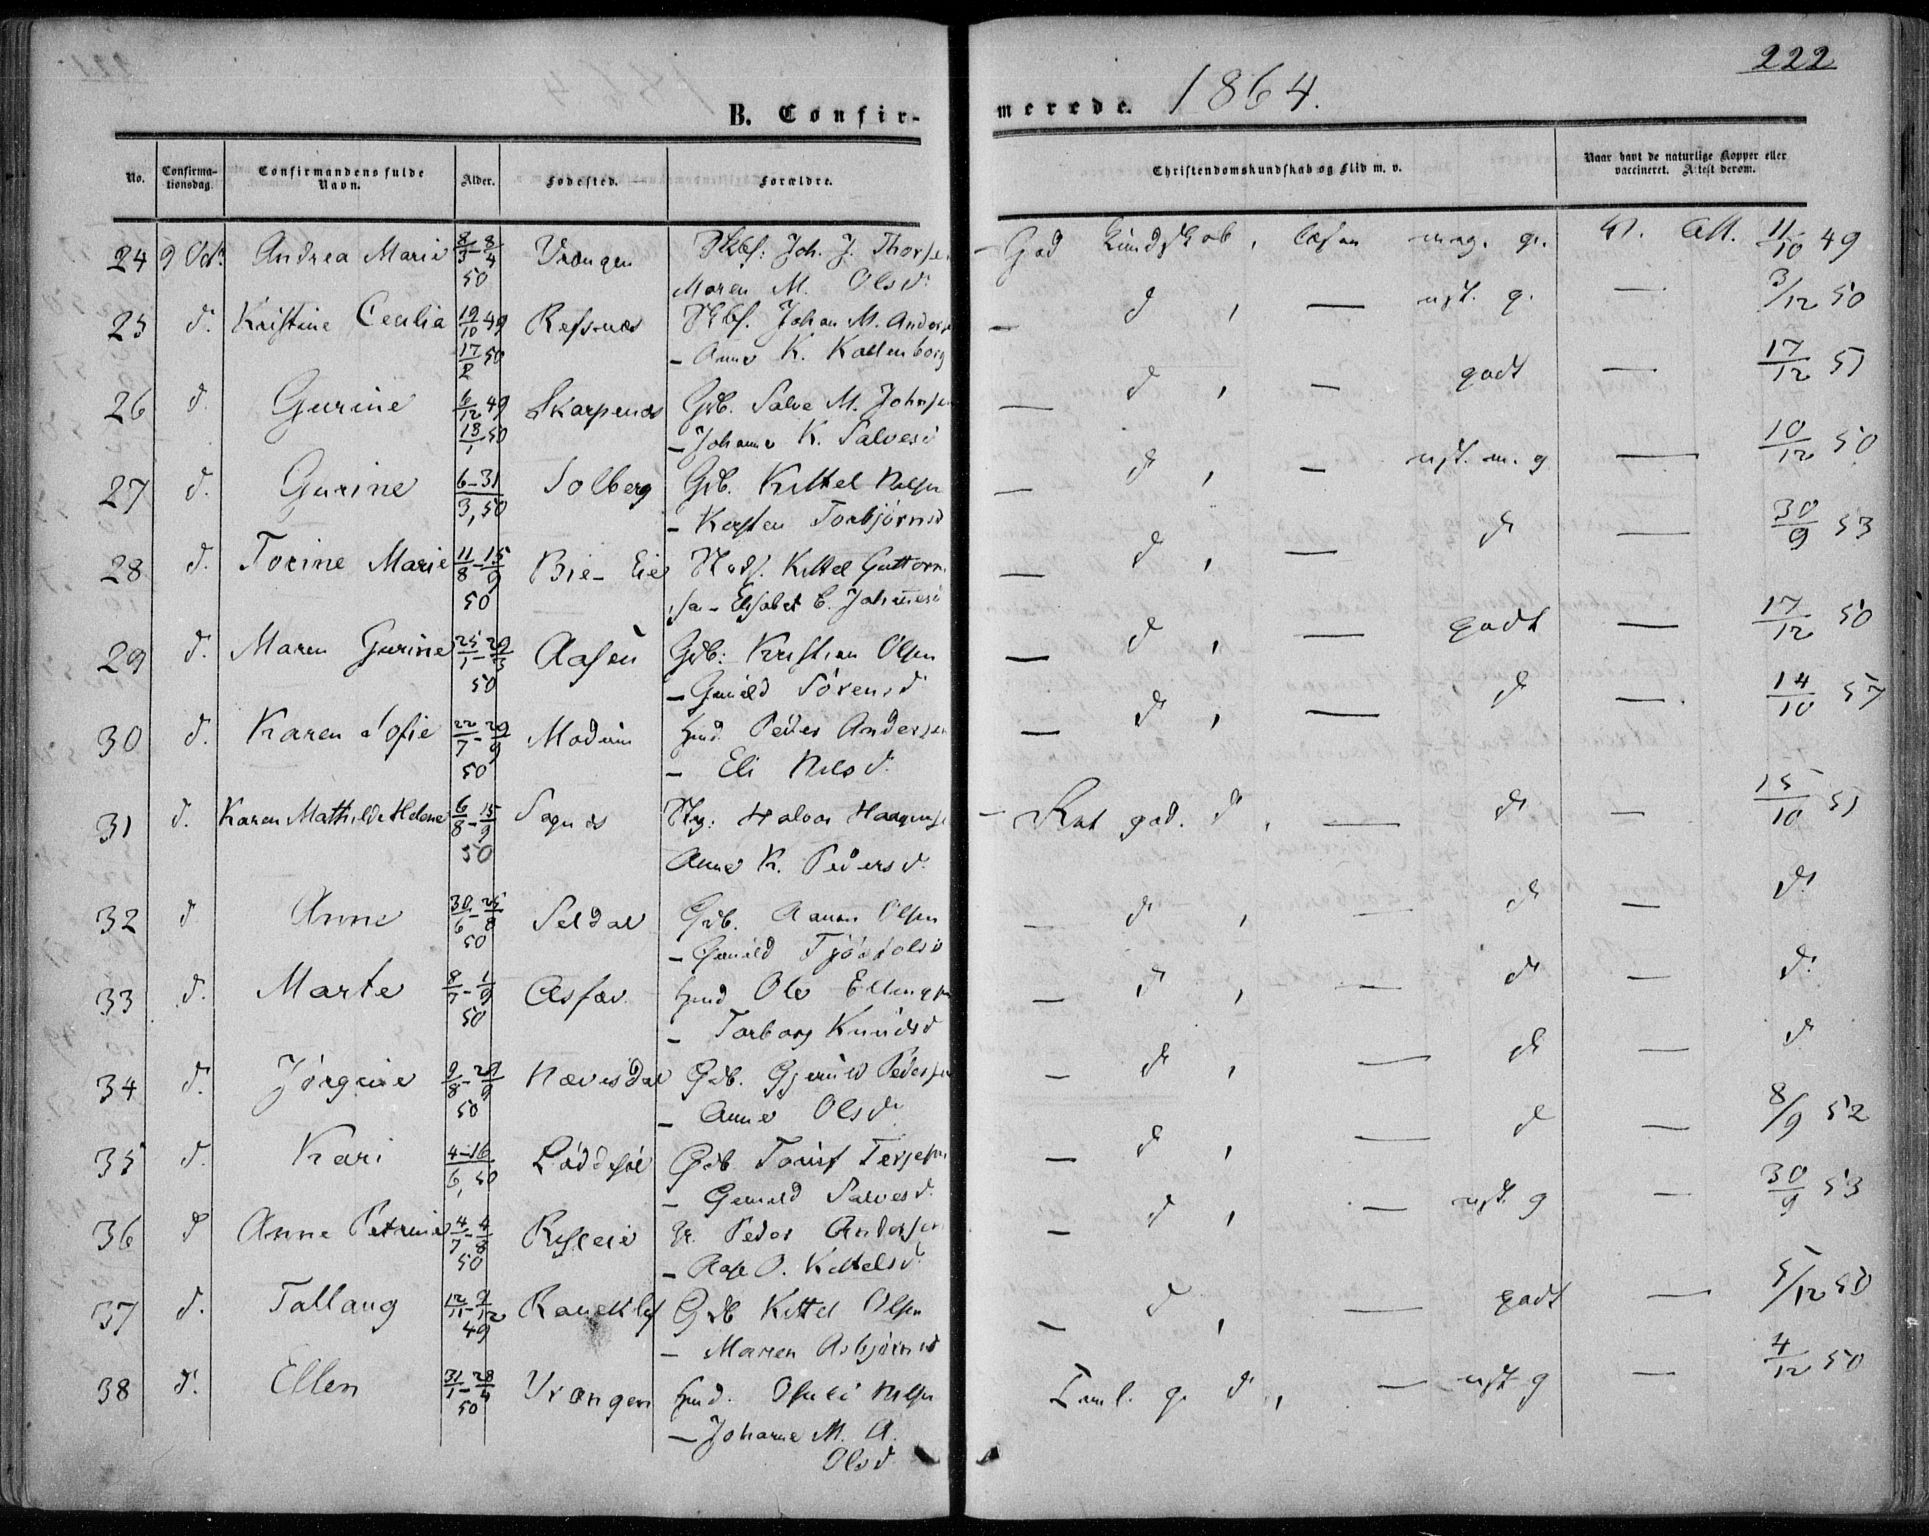 222
B. Confir-
merede. 1864.
No.
Confirma-
tionsdag.
Confirmandens fulde
Navn.
Alder.
Fødested.
Forældre.
Christendomskundskab og Flid m. v.
Naar havt de naturlige Kopper eller
vaccineret. Attest derom.
24 9 Oct. Andrea Marie 8/3-8/4 50 Vrængen Joh. J. Thorsen
Maren M. Olsd.
God Kundskab, mag. g. Att. 11/10 49
25 d. Kristine Cecilia 19/10 49 17/2 50 Refsnæs Johan M. Anders
- Anne K. Kallenborg
- d , — ust. g. — 3/12 50
26 d. Gurine 6/12 49 13/1 50 Skarpenæs Gdb. Salve M. Johnsen
- Johanne K. Salvesd
— d , — godt — 17/12 51
27 d. Gurine 6-31/3, 50 Solberg Gdb. Kittel Nilsen
- Kersten Torbjørnsd
— d , — ust. m. g — 10/12 50
28 d. Torine Marie 11/8-15/9 50 Bie-Eie Kittel Guttorm
sen - Elisabet C. Johannesd
— d , — d — 30/9 53
29 d. Maren Gurine 25/1-29/3 50 Aasen Gdb: Kristian Olsen
- Gunild Sörensd
— d , — godt — 17/12 50
30 d. Karen Sofie 22/7-29/9 50 Modum Hmd. Peder Andersen
- Eli Nilsd.
— d , — d — 14/10 57
31 d. Karen Mathilde Helene 6/8-15/9 50 Sognes Halvor Haagense
Anne K. Pedersd.
- Rat god. d , — d — 15/10 51
32 d Anne 30/6-25/8 50 Seldal Gdb. Aanon Olsen
- Gunild Tjöstolsd
- d , — d — d.
33 d. Marte 8/7-1/9 50 Hmd Ole Ellingsen
- Torborg Knudsd
— d , — d — d.
34 d. Jörgine 9/8-29/9 50 Nævesdal Gdb. Gjeruld Pedersen
- Anne Olsd.
- d , — d — d
35 d. Kari 4-16/6, 50 Löddesöl Gdb Terjesen
- Gunild Salvesd.
- d , — d — 8/9 52
36 d Anne Petrine 4/7-4/8 50 Peder Andersen
- Aase O. Kittelsd.
- d , — ust. g — 30/9 53
37 d. Tallaug 12/11-9/12 49 Gdb Kittel Olsen
- Maren Asbjørnsd
- d , — godt — 5/12 50
38 d. Ellen 31/1-28/4 50 Vrængen Hmd. Nilsen
- Johanne M. A.
Olsd
Teml. g. d , — ust g — 4/12 50